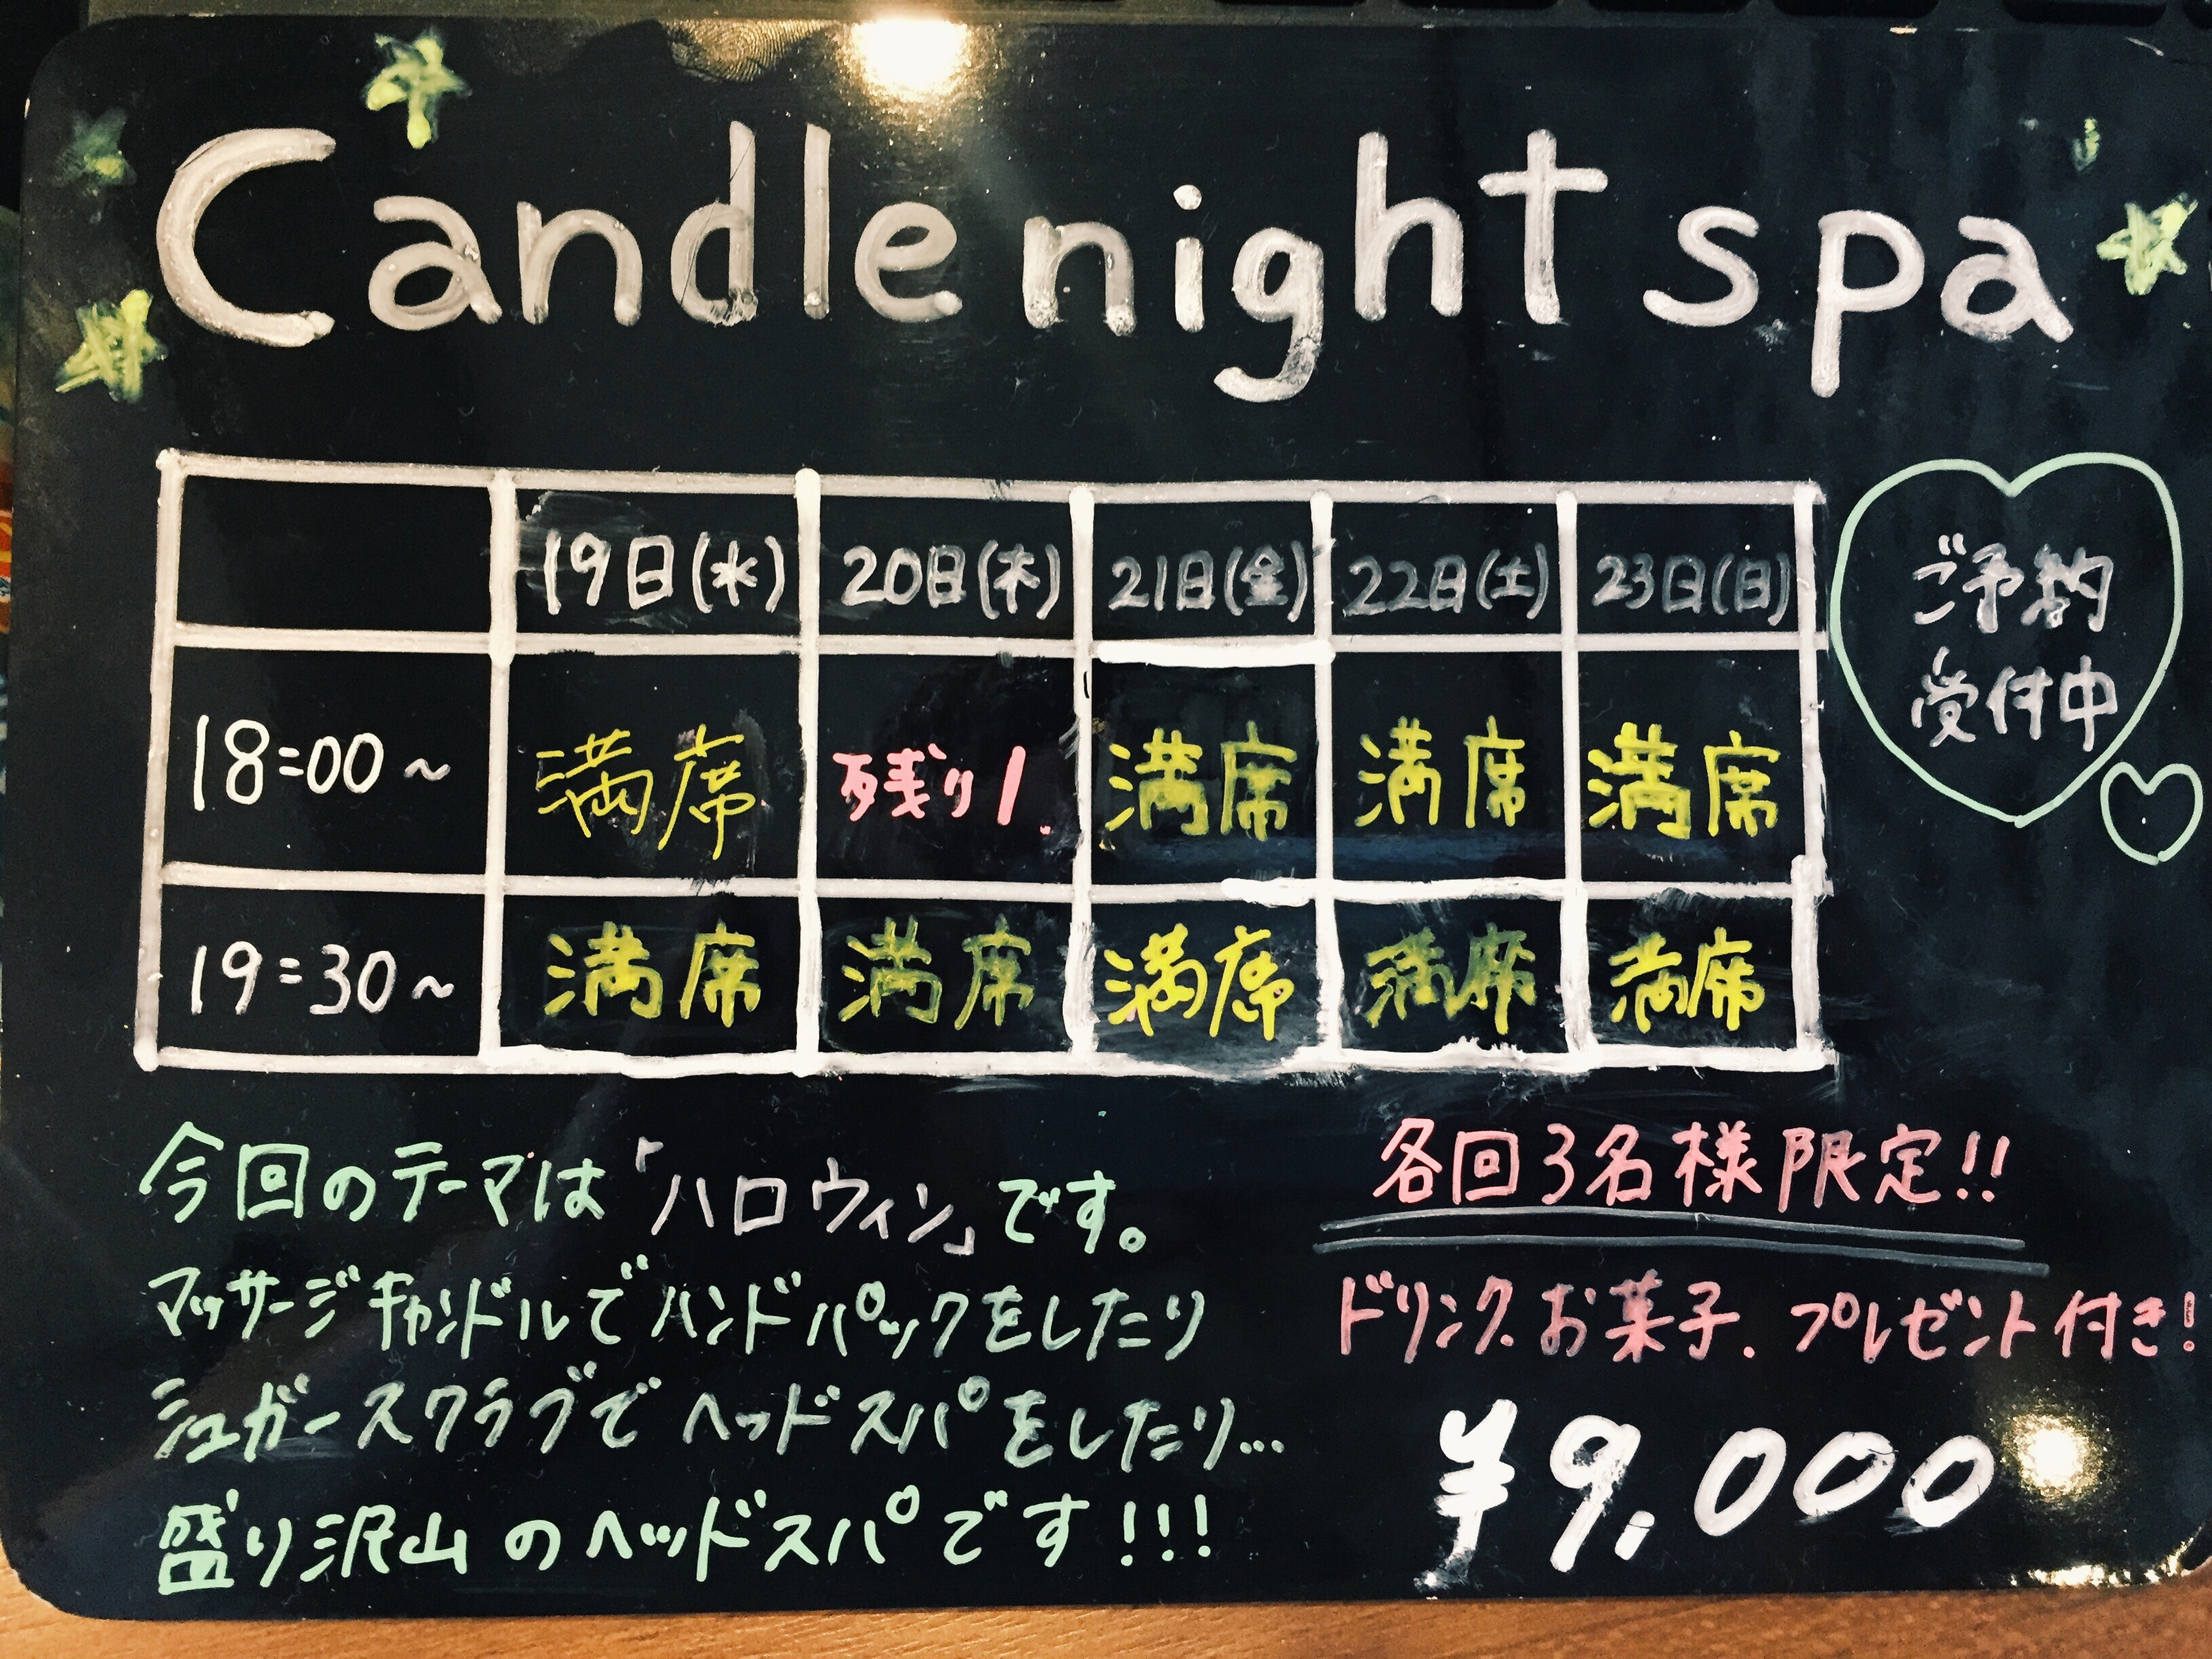 Candle night spa
19日(水) 20日(木) 21日(金) 22日(土) 23日(日)
ご予約
受付中
18:00~ 満席 残り1. 満席 満席 満席
19:30~ 満席 満席 満席 満席 満席
今回のテーマは「ハロウィン」です。
マッサージキャンドルでハンドパックをしたり
シュガースクラブでヘッドスパをしたり...
盛り沢山のヘッドスパです!!!
各回3名様限定!!
ドリンク.お菓子.プレゼント付き!
¥9,000